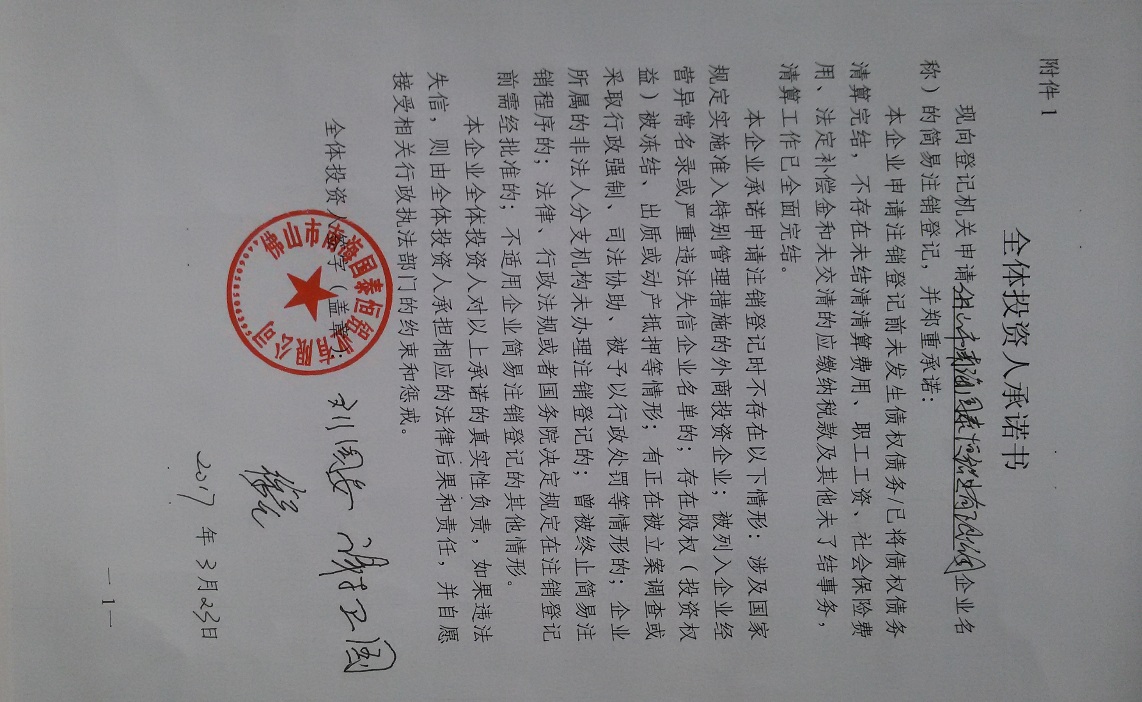 附件1
全体投资人承诺书
现向登记机关申请佛山市南海国泰恒铝业有限公司（企业名
称）的简易注销登记，并郑重承诺：
本企业申请注销登记前未发生债权债务/已将债权债务
清算完结，不存在未结清清算费用、职工工资、社会保险费
用、法定补偿金和未交清的应缴纳税款及其他未了结事务，
清算工作已全面完结。
本企业承诺申请注销登记时不存在以下情形：涉及国家
规定实施准入特别管理措施的外商投资企业；被列入企业经
营异常名录或严重违法失信企业名单的；存在股权（投资权
益）被冻结、出质或动产抵押等情形；有正在被立案调查或
采取行政强制、司法协助、被予以行政处罚等情形的；企业
所属的非法人分支机构未办理注销登记的；曾被终止简易注
销程序的；法律、行政法规或者国务院决定规定在注销登记
前需经批准的；不适用企业简易注销登记的其他情形。
本企业全体投资人对以上承诺的真实性负责，如果违法
失信，则由全体投资人承担相应的法律后果和责任，并自愿
接受相关行政执法部门的约束和惩戒。
全体投资人签字（盖章）：
佛山市南海国泰恒铝业有限公司
2017年3月23日
—1—